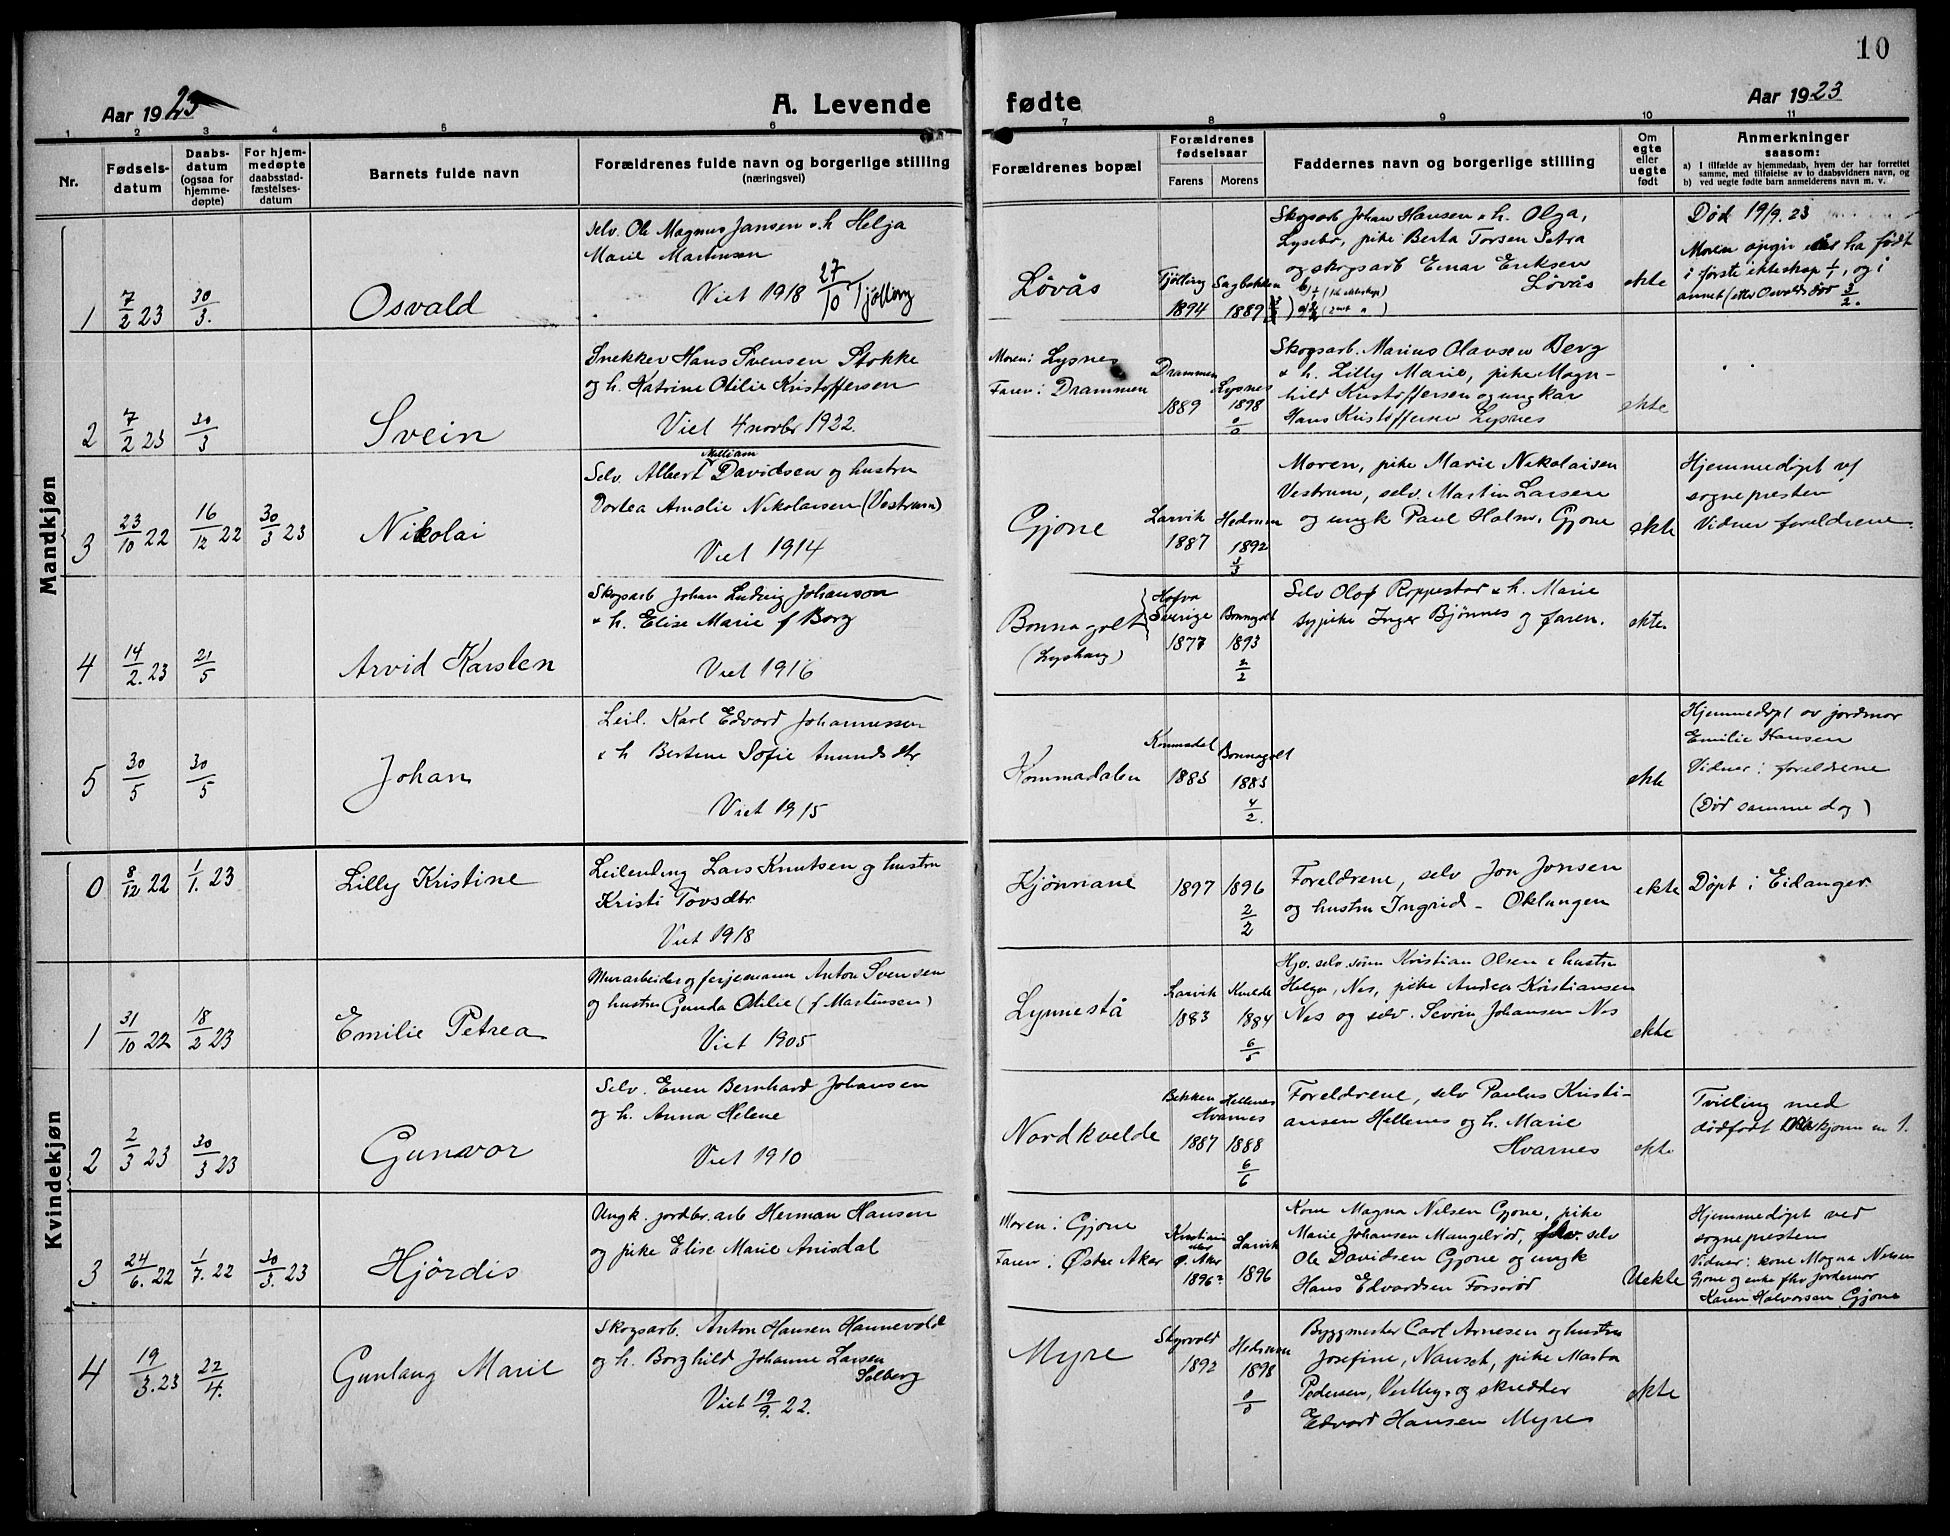 10
Aar 1923
A. Levende fødte
Aar 1923
1 2 3 4 5 6 7 8 9 10 11
Nr.
Fødsels-
datum
Daabs-
datum
(ogsaa for
hjemme-
døpte)
For hjem-
medøpte
daabsstad-
fæstelses-
datum
Barnets fulde navn
Forældrenes fulde navn og borgerlige stilling
(næringsvei)
Forældrenes bopæl
Forældrenes
fødselsaar
Farens Morens
Faddernes navn og borgerlige stilling
Om
egte
eller
uegte
født
Anmerkninger
saasom:
a) I tilfælde av hjemmedaab, hvem der har forrettet
samme, med tilføielse av to daabsvidners navn, og
b) ved uegte fødte barn anmelderens navn m. v.
Mandkjøn
1
7/2 23
30/3.
Osvald
Selv. Ole Magnus Jansen o.h Helja
Marie Martinsen
Viet 1918 27/10 Tjølling
Løvås
Tjølling
1894
Sagbakken
1889
Skogsarb Johan Hansen o. h. Olga,
Lysebo, pike Berta Torsen Setra
og skogsarb Einar Eriksen
Løvås
ekte
Død 19/9. 23
Moren opgir at ha født
i første ekteskap 1/1, og i
annet (etter Osvalds død 3/2.
2
7/2 23
30/3
Svein
Snekker Hans Svensen Stokke
og h. Katrine Otilie Kristoffersen
Viet 4 novbr 1922.
Moren: Lysnes
Faren: Drammen
Drammen
1889
Lysnes
1898
0/0
Skogsarb. Marius Olavsen Berg
o h. Lilly Marie, pike Magn-
hild Kristoffersen og ungkar
Hans Kristoffersen Lysnes
ekte
3
23/10 22
16/12 22
30/3 23
Nikolai
Selv. Albert William Davidsen og hustru
Dortea Amalie Nikolaisen (Vestrum)
Viet 1914
Gjone
Larvik
1887
Hedrum
1892
3/3
Moren, pike Marie Nikolaisen
Vestrum, selv. Martin Larsen
og ungk Paul Holm, Gjone
ekte
Hjemmedøpt v/
sognepresten
Vidner foreldrene.
4
14/2. 23
21/5
Arvid Karsten
Skogsarb Johan Ludvig Johanson
o h. Elise Marie f Borg
Viet 1916
Bonnagolt
(Lyshaug)
Sverige
1877
Bonnegolt
1893
2/2
Selv Olof Roppestad o h. Marie
sypike Inger Bjønnes og faren.
ekte
5
30/5
30/5
Johan
Leil. Karl Edvard Johannessen
o h Bertine Sofie Amundsdtr
Viet 1915
Kommadalen
Kommedal
1883
Bonnegolt
1883
4/2.
ekte
Hjemmedøpt av jordmor
Emilie Hansen
Vidner: foreldrene
(Død samme dag)
Kvindekjøn
0
8/12 22
1/1. 23
Lilly Kristine
Leilending Lars Knutsen og hustru
Kristi Tovsdtr
Viet 1918
Kjønnane
1897
1896
2/2
Foreldrene, selv Jon Jonsen
og hustru Ingrid - Oklungen
ekte
Døpt i Eidanger.
1
31/10 22
18/2 23
Emilie Petrea
Murarbeider og ferjemann Anton Svensen
og hustru Gunda Otilie (f Martinsen)
Viet 1905
Lynnestå
Larvik
1883
Kvelde
1884
6/5
Hjv. selv. sønn Kristian Olsen o hustru
Helga, Nes, pike Andrea Kristiansen
Nes og selv. Severin Johansen Nes
ekte
2
2/3 23
30/3 23
Gunvor
Selv. Even Bernhard Johansen
og h. Anna Helene
Viet 1910
Nordkvelde
Bekken
1887
Hellenes
Hvarnes
1888
6/6
Foreldrene, selv Paulus Kristi-
ansen Hellenes og h. Marie
Hvarnes
ekte
Tvilling med
dødfødt kjønn nr 1.
3
24/6. 22
1/7. 22
30/3. 23
Hjørdis
Ungk. jordbr. arb Herman Hansen
og pike Elise Marie Arisdal
Moren: Gjone
Faren: Østre Aker
Kristiania
eller
Ø. Aker
1896?
Larvik
1896
Kone Magna Nilsen Gjone, pike
Marie Johansen Mangelrød, selv
Ole Davidsen Gjone og ungk
Hans Edvardsen Forserød
Uekte
Hjemmedøpt ved
sognepresten
Vidner: kone Magna Nilsen
Gjone og enke fhv jordemor
Karen Halvorsen Gjone
4
19/3. 23
22/4.
Gunlaug Marie
Skogsarb. Anton Hansen Hannevold
og h. Borghild Johanne Larsen
Solberg
Viet 19/9. 22.
Myre
1892
Hedrum
1898
0/0
Byggmester Carl Arnesen og hustru
Josefine, Nanset, pike Marta
Pedersen, og skredder
Edvard Hansen Myre
ekte